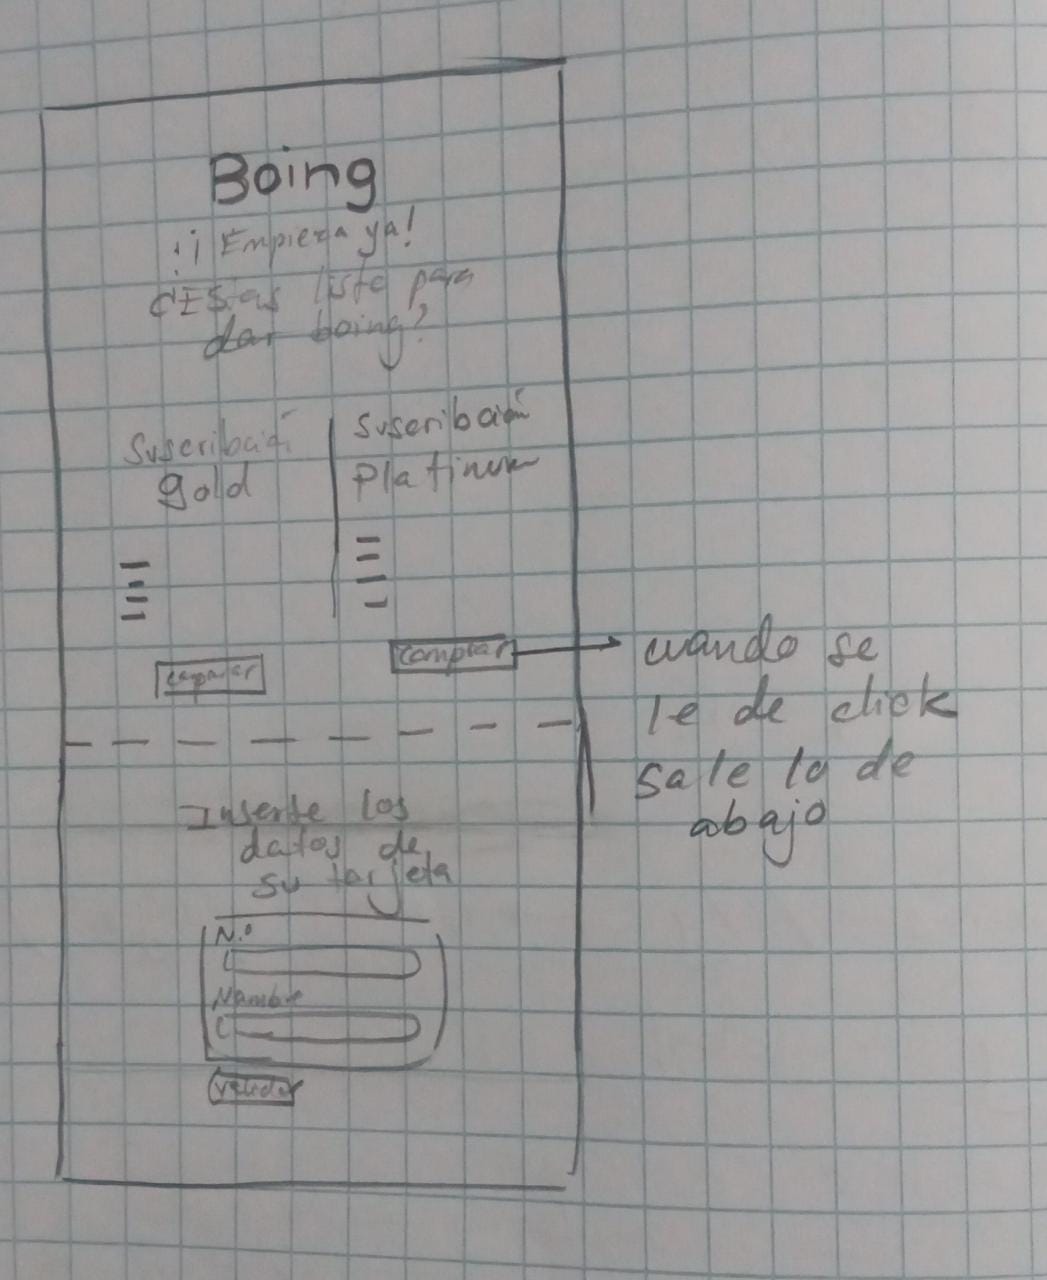 Boing
¡¡Empieza ya!
¿Estas listo para
dar boing?
Suscribación
gold
Suscribación
Platinum
comprar
comprar
cuando se
le de click
sale lo de
abajo
Inserte los
datos de
su tarjeta
N.o
Nombre
validar